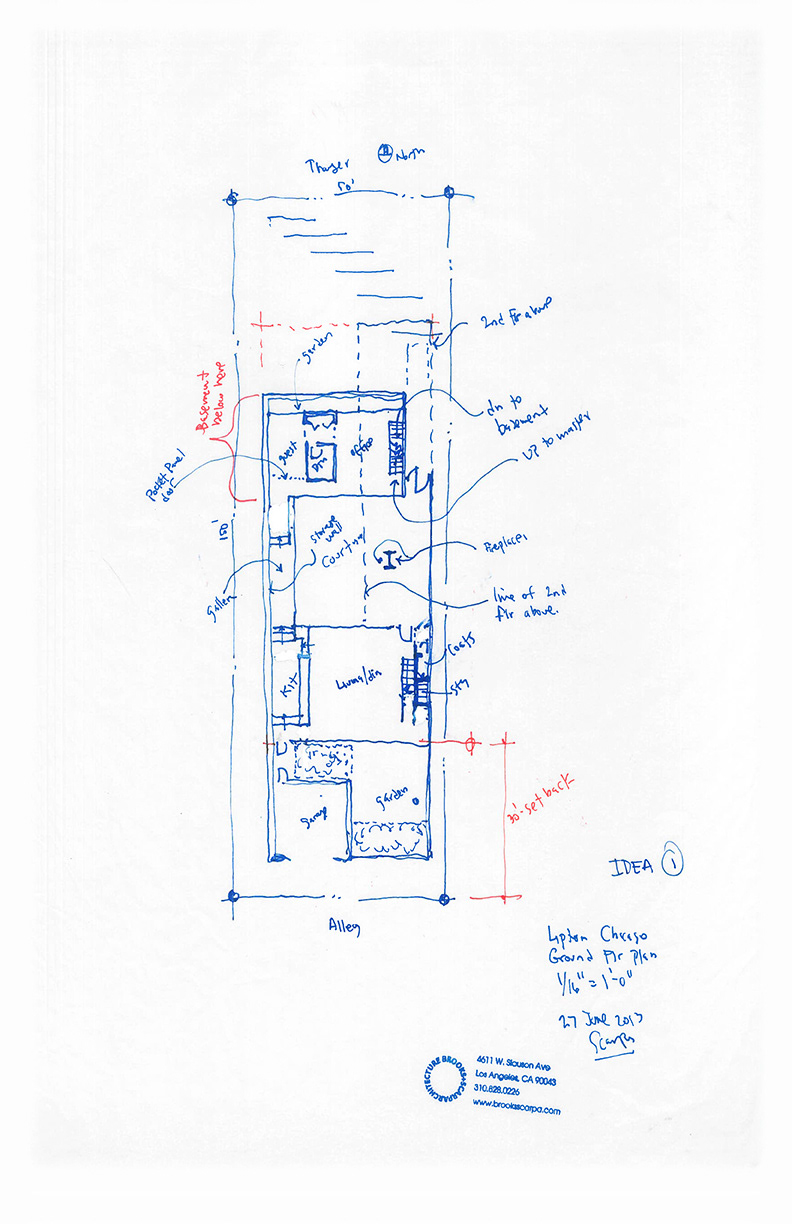 North
50'
2nd Flr above
Garden
Basement
below here
dn to
basement
up to master
Guest
office
Pocket Panel
door
150'
Storage
wall
Courtyard
Fireplace
Gallery
line of 2nd
Flr above.
Coats
Kit
Living/din
Stg
Garden
Garage
30' setback
Alley
IDEA 1
Lipton Chicago
Ground Flr Plan
1/16" = 1'-0"
27 June 2013
Scarpa
BROOKS+SCARPA ARCHITECTURE
4611 W. Slauson Ave
Los Angeles, CA 90043
310.828.0226
www.brooksscarpa.com